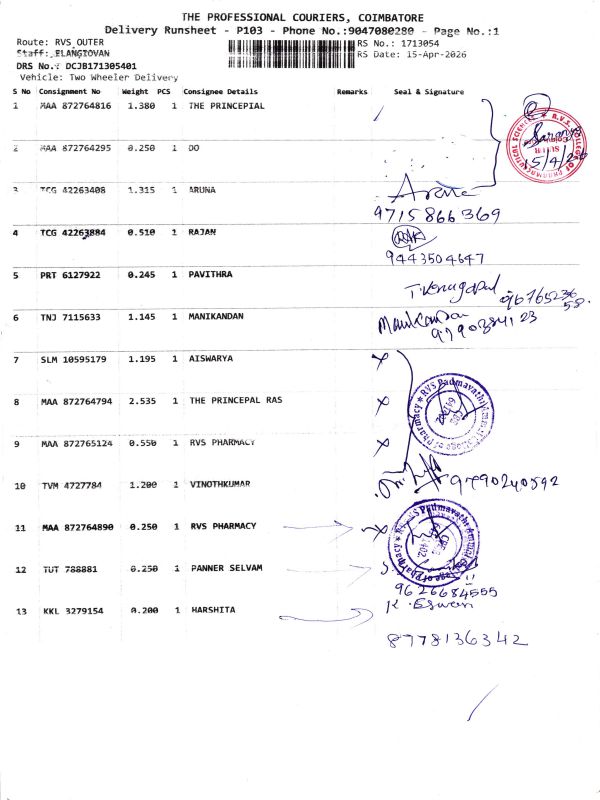 THE PROFESSIONAL COURIERS, COIMBATORE
Delivery Runsheet - P103 - Phone No.:9047080280 - Page No.:1
Route: RVS_OUTER RS No.: 1713054
Staff: ELANGIOVAN RS Date: 15-Apr-2026
DRS No.: DCJB171305401
Vehicle: Two Wheeler Delivery
S No Consignment No Weight PCS Consignee Details Remarks Seal & Signature
1 MAA 872764816 1.380 1 THE PRINCEPIAL
2 MAA 872764295 0.250 1 DO
15/4/26
3 TCG 42263408 1.315 1 ARUNA
9715866369
4 TCG 42263884 0.510 1 RAJAN
9443504647
5 PRT 6127922 0.245 1 PAVITHRA
T. Venugopal
6 TNJ 7115633 1.145 1 MANIKANDAN Manikandan
7 SLM 10595179 1.195 1 AISWARYA
8 MAA 872764794 2.535 1 THE PRINCEPAL RAS
RVS Padmavathi Ammal College of Pharmacy
9 MAA 872765124 0.550 1 RVS PHARMACY
10 TVM 4727784 1.200 1 VINOTHKUMAR 9790240592
11 MAA 872764890 0.250 1 RVS PHARMACY
RVS Padmavathi Ammal College of Pharmacy
12 TUT 788881 0.250 1 PANNER SELVAM
9626684555
13 KKL 3279154 0.200 1 HARSHITA K. Eswari
8778136342